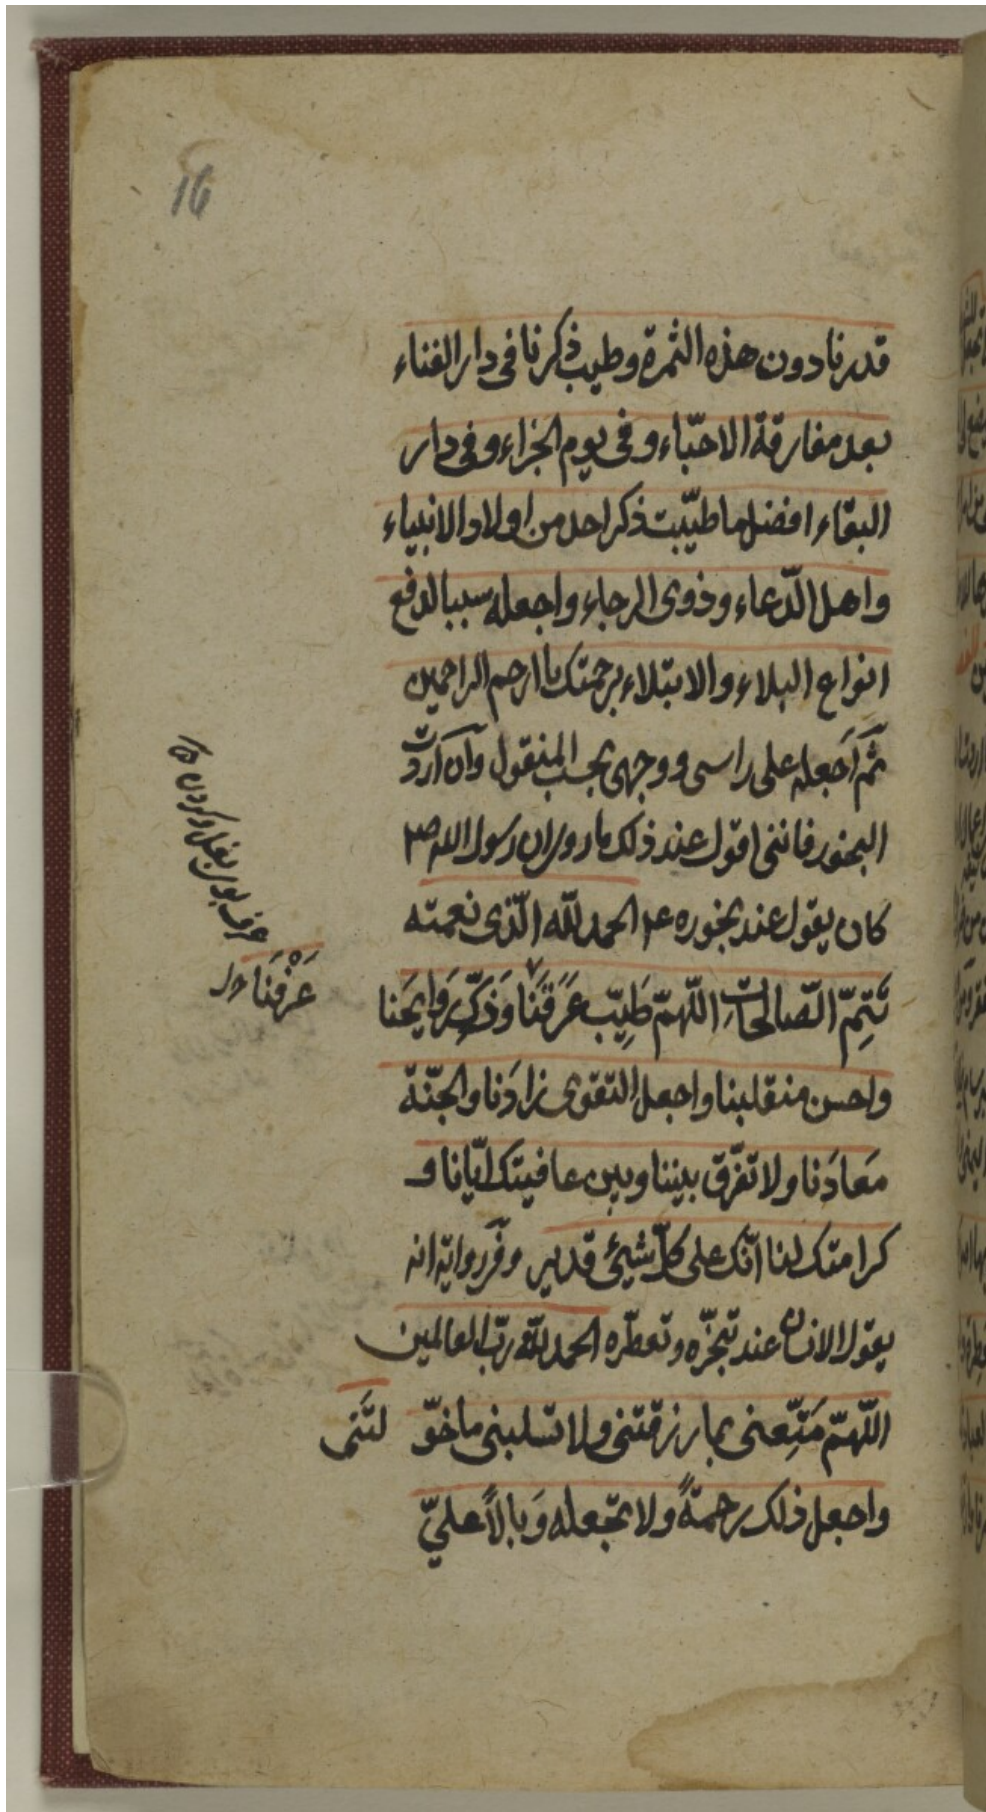 16
قدرنا دون هذه الثمرة وطيب ذكرنا فى دار الفناء
بعد مفارقة الاحبّاء وفى يوم الجزاء وفى دار
البقاء افضل ما طيّبت ذكر احد من اولاد الانبياء
واهل الدّعاء وذوى الرجاء واجعله سببا لدفع
انواع البلاء والابتلاء برحمتك يا ارحم الراحمين
ثمّ اَجعله على راسى ووجهى بحسب المنقول وان اردت
البخور فاننى اقول عند ذلك ما روى ان رسول الله ص
كان يقول عند بخوره الحمد للّه الّذى نعمته
تَتِمّ الصّالحات اللّهمّ طَيِّب عَرفَنَا وَذَكِّ رَوايحَنا
واحسن منقلبنا واجعل التقوى زادَنا والجنّة
مَعادَنا ولا تفرّق بيننا وبين عافيتك ايّانا و
كرامتك لنا انّك على كلّ شيئ قدير وفى رواية انه
يقول الانسان عند تبخّره وتعطّره الحمد للّه ربّ العالمين
اللّهمّ مَتِّعنى بما رزقتنى ولا تسلبنى ما خوّ لتَنى
واجعل ذلك رحمةً ولا تجعله وَبالاً عليّ
عَرْفَنَا